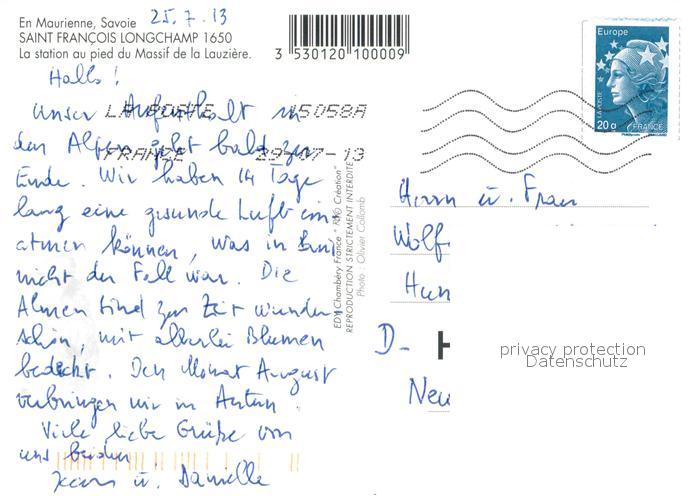 En Maurienne, Savoie
25.7.13
SAINT FRANÇOIS LONGCHAMP 1650
La station au pied du Massif de la Lauzière.
3 530120 100009
Europe
LA POSTE
20 g
FRANCE
Hallo!
LA POSTE 45058A
FRANCE 29-07-13
Unser Aufenthalt in
den Alpen geht bald zu
Ende. Wir haben 14 Tage
lang eine gesunde Luft ein
atmen können, was in
nicht der Fall war. Die
Almen sind zur Zeit wunder
schön, mit allerlei Blumen
bedeckt. Den Monat August
verbringen wir in
Viele liebe Grüße von
uns beiden
u. Danielle
EDY Chambéry France
Création
REPRODUCTION STRICTEMENT INTERDITE
Photo : Olivier Collomb
Herrn u. Frau
Wolf
Hun
D- H
Neu
privacy protection
Datenschutz